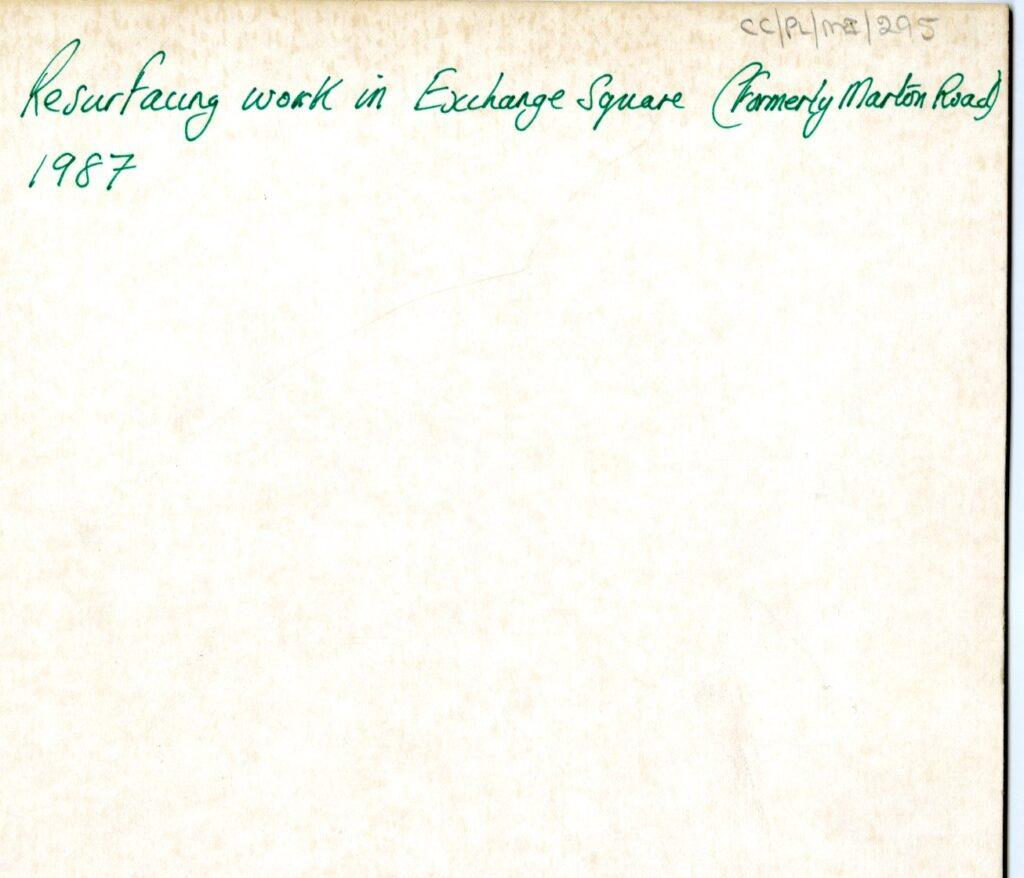 CC/PL/MI/295
Resurfacing work in Exchange Square (Formerly Marton Road)
1987